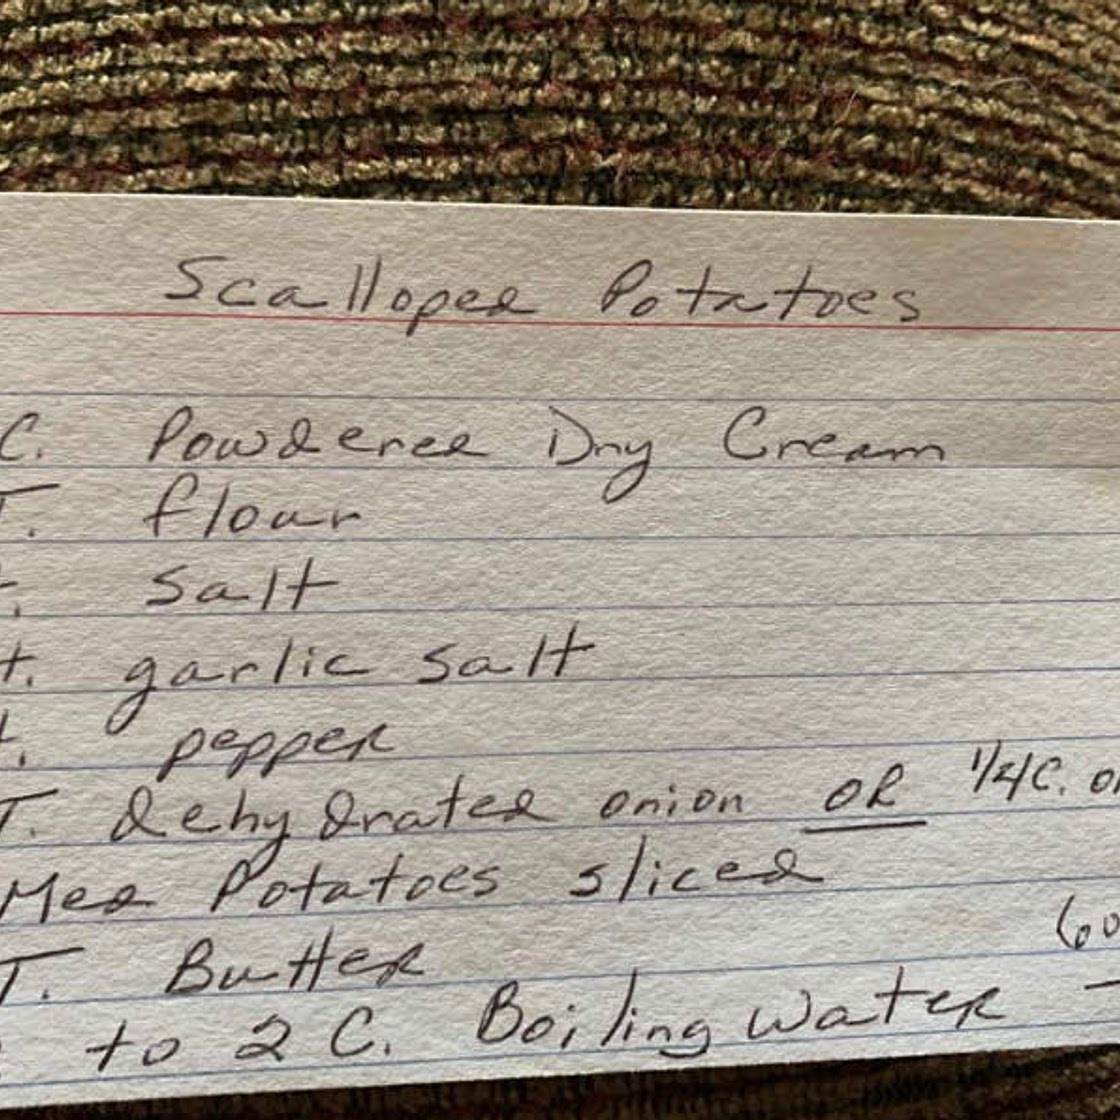 Scalloped Potatoes
C. Powdered Dry Cream
T. flour
t. salt
t. garlic salt
t. pepper
T. dehydrated onion OR 1/4 C.
Med Potatoes sliced
T. Butter
to 2 C. Boiling water